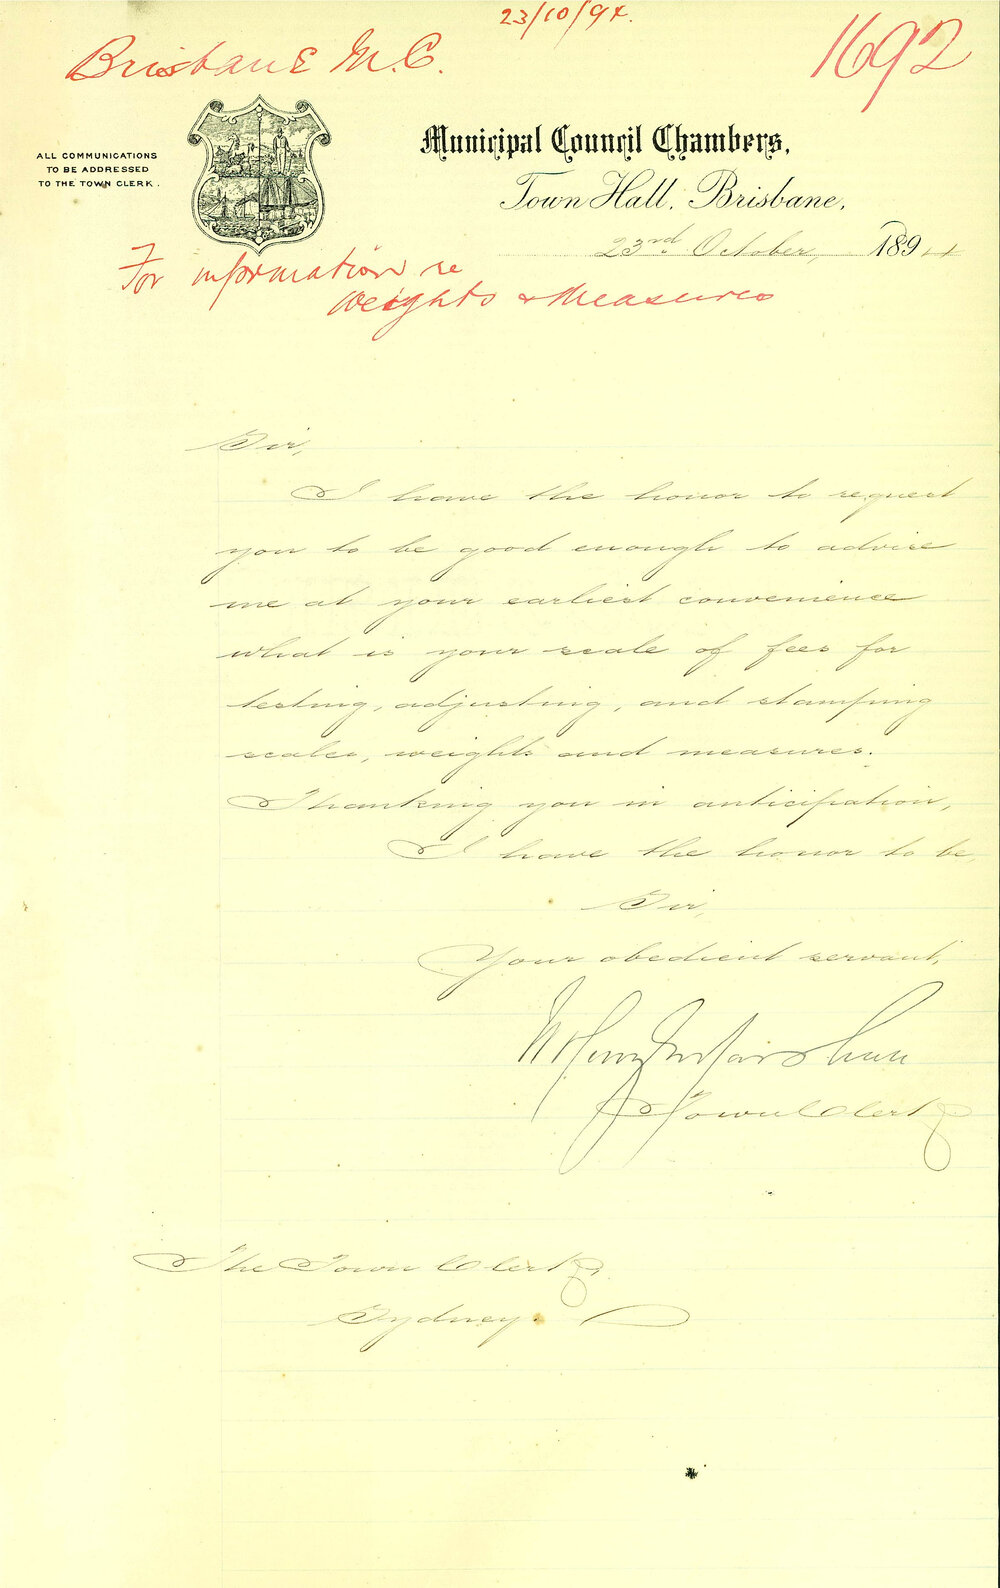 23/10/94.
Brisbane M.C.
1692
ALL COMMUNICATIONS
TO BE ADDRESSED
TO THE TOWN CLERK.
Municipal Council Chambers,
Town Hall, Brisbane,
23rd October, 1894
For information re
Weights & Measures
Sir,
I have the honor to request
you to be good enough to advise
me at your earliest convenience
what is your scale of fees for
testing, adjusting, and stamping
scales, weights and measures.
Thanking you in anticipation,
I have the honor to be,
Sir,
Your obedient servant,
W Henry G Marshall
Town Clerk
The Town Clerk,
Sydney.